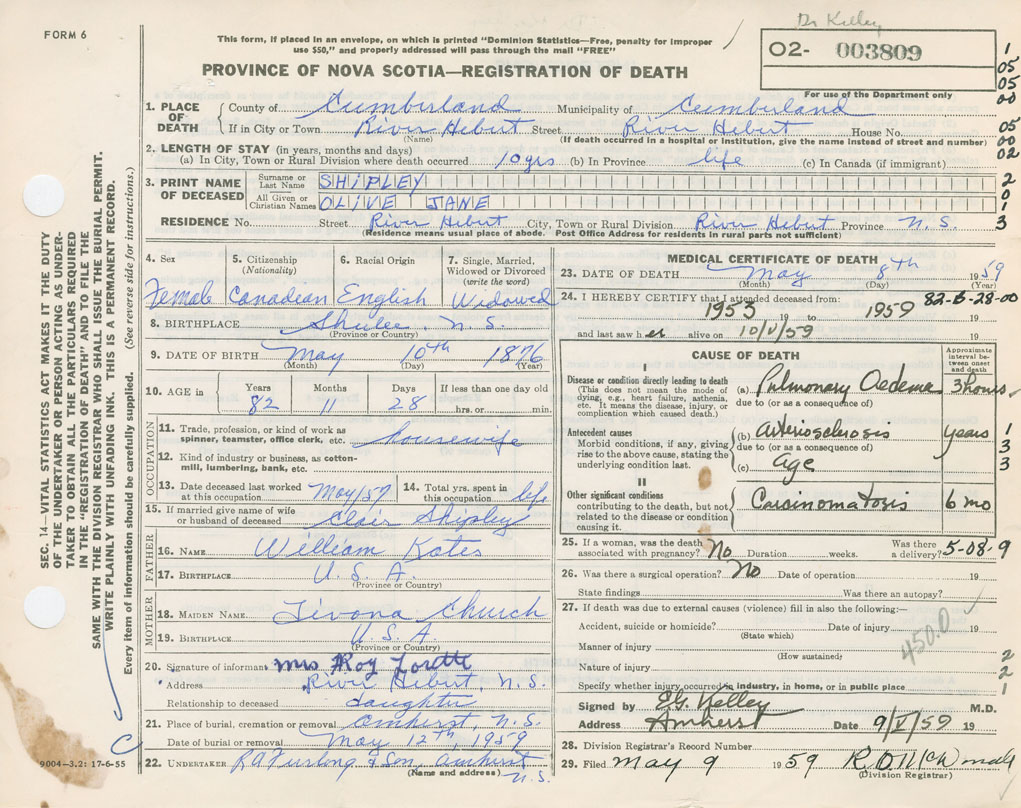 Dr Kelley
FORM 6
This form, if placed in an envelope, on which is printed "Dominion Statistics—Free, penalty for improper
use $50," and properly addressed will pass through the mail "FREE"
O2- 003809
For use of the Department only
PROVINCE OF NOVA SCOTIA—REGISTRATION OF DEATH
1
05
05
00
05
00
02
2
0
1
3
SEC. 14—VITAL STATISTICS ACT MAKES IT THE DUTY
OF THE UNDERTAKER OR PERSON ACTING AS UNDER-
TAKER TO OBTAIN ALL THE PARTICULARS REQUIRED
IN THE "REGISTRATION OF DEATH" AND TO FILE THE
SAME WITH THE DIVISION REGISTRAR WHO SHALL ISSUE THE BURIAL PERMIT.
WRITE PLAINLY WITH UNFADING INK. THIS IS A PERMANENT RECORD.
Every item of information should be carefully supplied. (See reverse side for instructions.)
1. PLACE OF DEATH County of Cumberland Municipality of Cumberland
If in City or Town River Hebert Street River Hebert House No.
(Name) (If death occurred in a hospital or institution, give the name instead of street and number)
2. LENGTH OF STAY (in years, months and days)
(a) In City, Town or Rural Division where death occurred 10 yrs (b) In Province life (c) In Canada (if immigrant)
3. PRINT NAME OF DECEASED Surname or Last Name SHIPLEY
All Given or Christian Names OLIVE JANE
RESIDENCE No. Street River Hebert City, Town or Rural Division River Hebert Province N.S.
(Residence means usual place of abode. Post Office Address for residents in rural parts not sufficient)
4. Sex 5. Citizenship (Nationality) 6. Racial Origin 7. Single, Married, Widowed or Divorced (write the word)
Female Canadian English Widowed
8. BIRTHPLACE Shulee, N.S.
(Province or Country)
9. DATE OF BIRTH May 10th 1876
(Month) (Day) (Year)
10. AGE in Years Months Days If less than one day old
82 11 28 hrs. or min.
OCCUPATION
11. Trade, profession, or kind of work as
spinner, teamster, office clerk, etc. housewife
12. Kind of industry or business, as cotton-
mill, lumbering, bank, etc.
13. Date deceased last worked at this occupation May/57 14. Total yrs. spent in this occupation life
15. If married give name of wife
or husband of deceased Clair Shipley
FATHER
16. NAME William Kates
17. BIRTHPLACE U.S.A.
(Province or Country)
MOTHER
18. MAIDEN NAME Church
19. BIRTHPLACE U.S.A.
(Province or Country)
20. Signature of informant Mrs Roy
Address River Hebert, N.S.
Relationship to deceased daughter
21. Place of burial, cremation or removal Amherst N.S.
Date of burial or removal May 12th, 1959
22. UNDERTAKER R A Furlong & Son, Amherst
(Name and address) N.S.
9004—3.2: 17-6-55
MEDICAL CERTIFICATE OF DEATH
23. DATE OF DEATH May 8th 1959
(Month) (Day) (Year)
24. I HEREBY CERTIFY that I attended deceased from: 82-B-28-00
1953 19 to 1959 19
and last saw her alive on 10/V/59 19
CAUSE OF DEATH Approximate interval between onset and death
I
Disease or condition directly leading to death
(This does not mean the mode of
dying, e.g., heart failure, asthenia,
etc. It means the disease, injury, or
complication which caused death.)
(a) Pulmonary Oedema 3 hours
due to (or as a consequence of)
Antecedent causes
Morbid conditions, if any, giving
rise to the above cause, stating the
underlying condition last.
(b) Arteriosclerosis years
due to (or as a consequence of)
(c) Age
1
3
3
II
Other significant conditions
contributing to the death, but not
related to the disease or condition
causing it.
Carcinomatosis 6 mo
25. If a woman, was the death
associated with pregnancy? No Duration weeks. Was there a delivery? 5-08-9
26. Was there a surgical operation? No Date of operation 19
State findings Was there an autopsy?
27. If death was due to external causes (violence) fill in also the following:—
Accident, suicide or homicide? Date of injury 19
(State which)
Manner of injury 450.0
(How sustained)
Nature of injury
2
2
1
Specify whether injury occurred in industry, in home, or in public place
Signed by E.G. Kelley M.D.
Address Amherst Date 9/V/59 19
28. Division Registrar's Record Number
29. Filed May 9 1959
(Division Registrar)